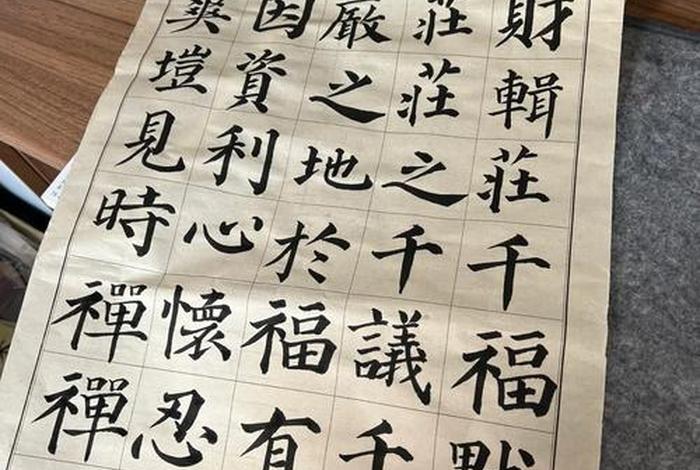 財輯莊千福
莊莊之千議千
嚴之地於福有
因資利心懷忍
爽塏見時禪禪